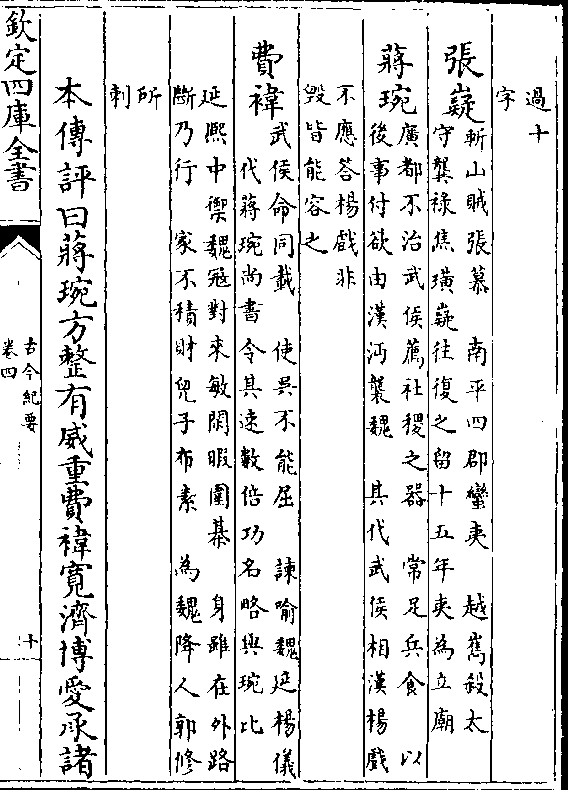 過十
字
張嶷
斬山賊張慕　南平四郡蠻夷　越嶲殺太
守龔祿焦璜嶷往復之留十五年夷為立廟
蔣琬
廣都不治武侯薦社稷之器　常足兵食　以
後事付欲由漢沔襲魏　其代武侯相漢楊戲
不應答楊戲非
毀皆能容之
費禕
武侯命同載　使吳不能屈　諫喻魏延楊儀
代蔣琬尚書令其速數倍功名略與琬比
延熙中禦魏冦對來敏閑暇圍棊　身雖在外路
斷乃行　家不積財兒子布素　為魏降人郭修
所
刺
本傳評曰蔣琬方整有威重費禕寛濟博愛承諸
欽定四庫全書
古今紀要
卷四
十